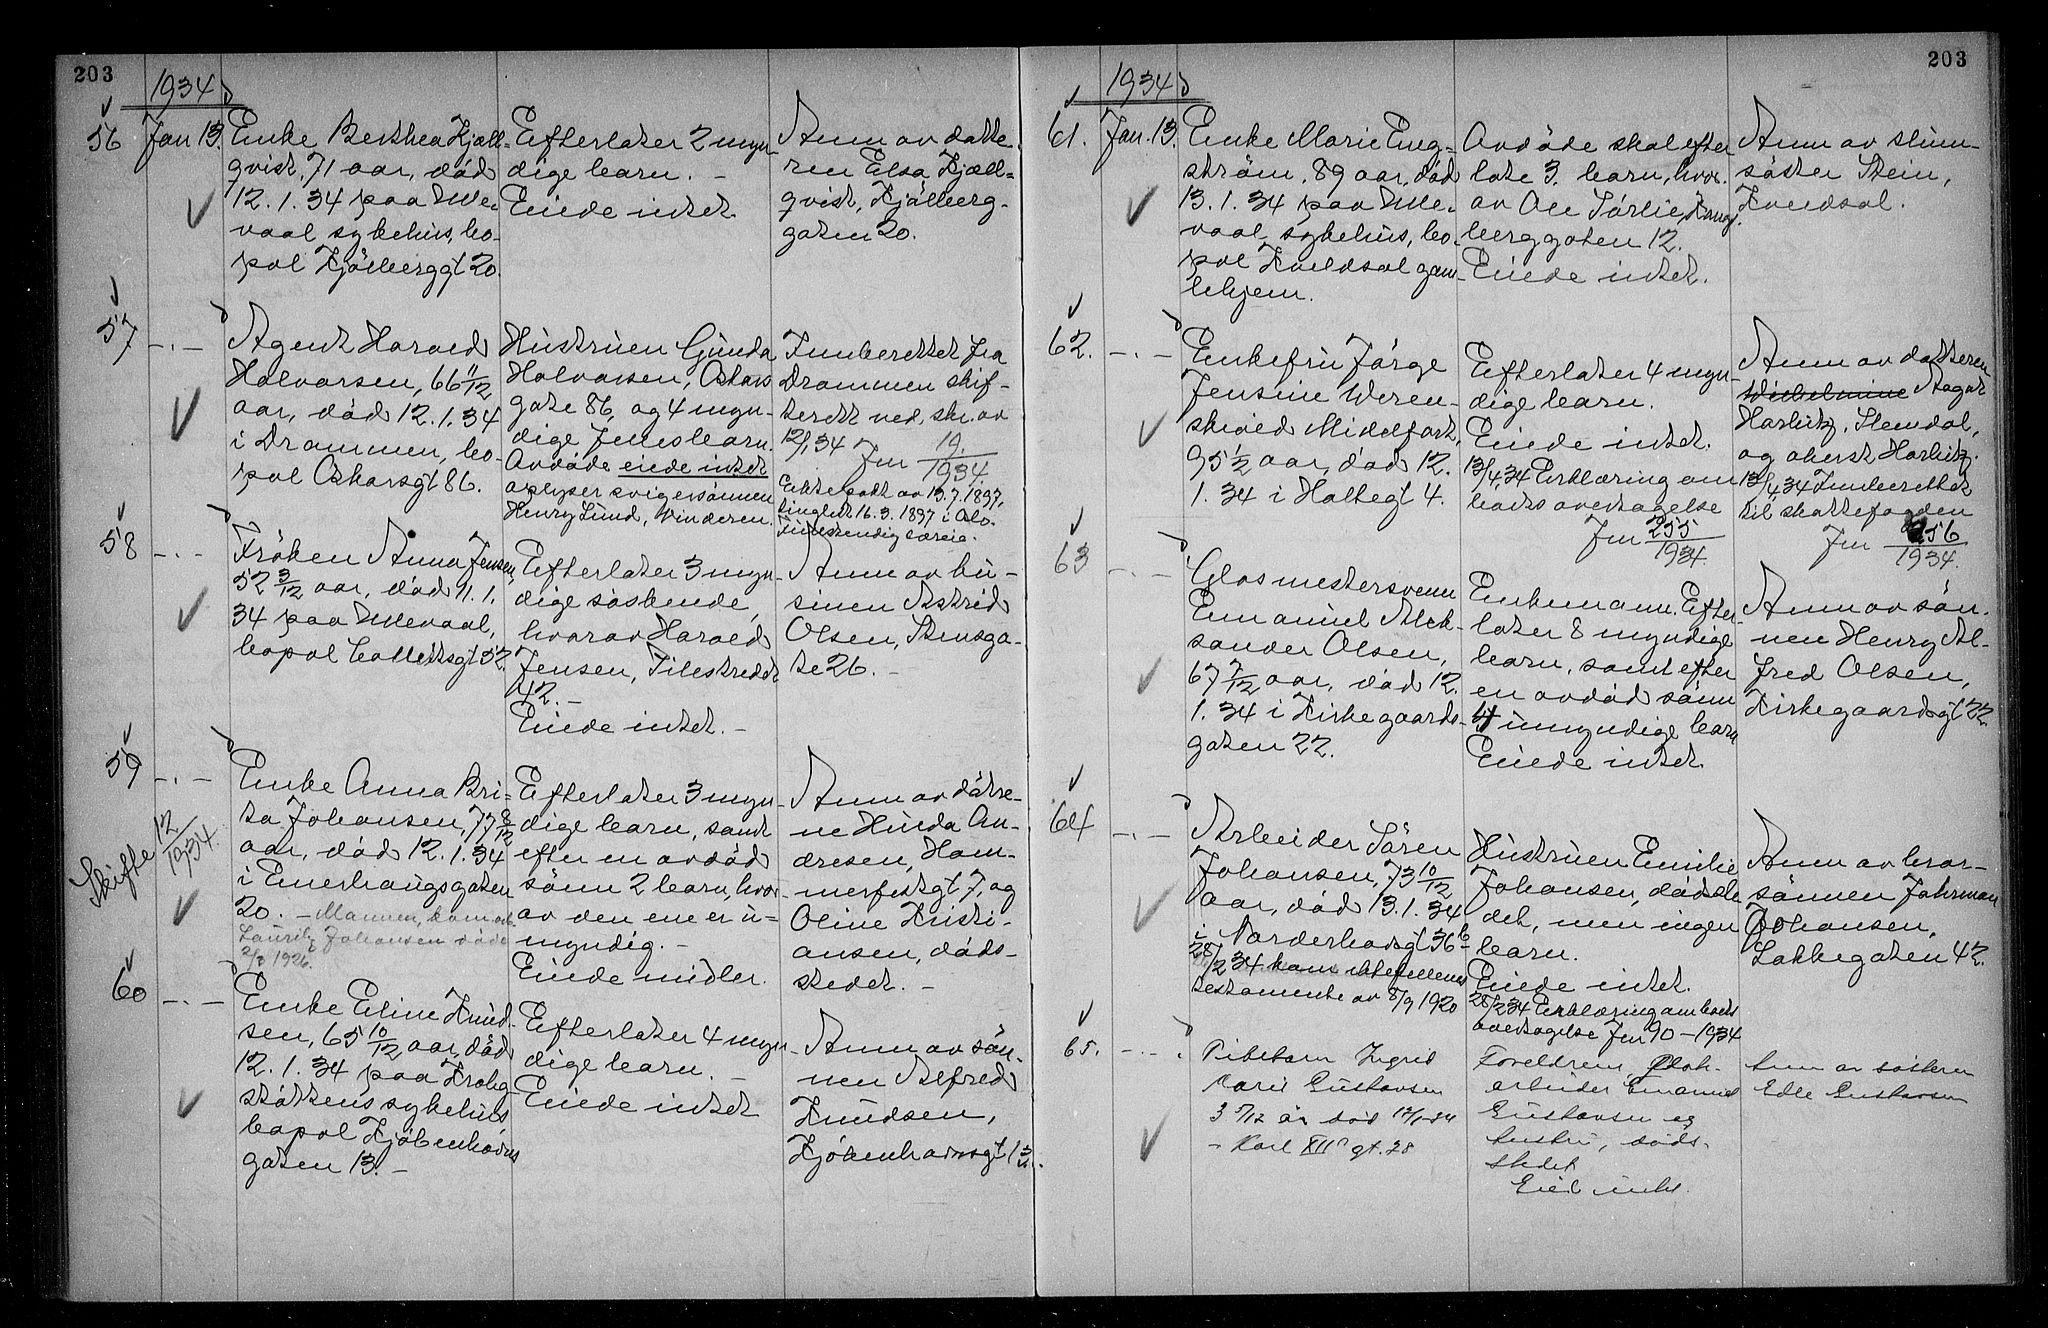 203
1934
56
Jan 13.
Enke Berthea Kjæll-
qvist, 71 aar, död
12.1.34 paa Ulle-
vaal sykehus, bo-
pæl Kjölberggt 20.
Efterlater 2 myn-
dige barn. -
Eiede intet.
Anm av datte-
ren Elsa Kjæll-
qvist, Kjölberg-
gaten 20.
57
- . -
Agent Harald
Halvorsen, 66 11/12
aar, död 12.1.34
i Drammen, bo-
pæl Oskarsgt 86.
Hustruen Gunda
Halvorsen, Oskars
gate 86, og 4 myn-
dige fellesbarn.
Avdöde eiede intet
oplyser svigersönnen
Henry Lund, Vinderen.
Innberettet fra
Drammen skif-
terett ved skr. av
12/1.34 Jnr 19./1934.
Ektepakt av 13.7.1897,
tinglest 16.3.1897 i Oslo.
Fullstendig særeie.
58
- . -
Fröken Anna Jensen,
52 3/12 aar, död 11.1.
34 paa Ullevaal,
bopæl Collettsgt 52.
Efterlater 3 myn-
dige söskende,
hvorav Harald
Jensen, Pilestredet
42. -
Eiede intet. -
Anm av ku-
sinen Astrid
Olsen, Stensga-
te 26. -
59
- . -
Skifte 12/1934.
Enke Anna Bri-
ta Johansen, 77 8/12
aar, död 12.1.34
i Enerhaugsgaten
20. - Mannen,
Lauritz Johansen döde
2/8 1926.
Efterlater 3 myn-
dige barn, samt
efter en avdöd
sönn 2 barn, hvor-
av den ene er u-
myndig. -
Eiede midler.
Anm av dötre-
ne Hulda An-
dresen, Ham-
merfestgt 7, og
Oline Kristi-
ansen, döds-
stedet. -
60
- . -
Enke Eline Knud-
sen, 65 10/12 aar, död
12.1.34 paa Krohg-
stöttens sykehus
bopæl Kjöbenhavns
gaten 13. -
Efterlater 4 myn-
dige barn. -
Eiede intet
Anm av sön-
nen Alfred
Knudsen,
Kjöbenhavnsgt 13.
203
1934
61.
Jan. 13.
Enke Marie Eng-
ström, 89 aar, död
13.1.34 paa Ulle-
vaal sykehus, bo-
pæl Kveldsol gam-
lehjem.
Avdöde skal efter
late 3 barn, hvor-
av Ole Sörlie,
berggaten 12.
Eiede intet.
Anm av
söster Stein,
Kveldsol.
62.
- . -
Enkefru Jörge
Jensine Weren-
skiold Middelfart,
95 1/2 aar, död 12.
1.34 i Holtegt 4.
Efterlater 4 myn-
dige barn.
Eiede intet.
13/4.34 Erklæring om
boets overtagelse
Jnr 255/1934.
Anm av datteren
Wilhelmine Aagot
Harbitz, Slemdal,
og oberst Harbitz.
13/4.34 Innberettet
til skattefogden
Jnr 256/1934.
63
- . -
Glasmestersvenn
Emanuel Alek-
sander Olsen,
67 7/12 aar, död 12.
1.34 i Kirkegaards-
gaten 22.
Enkemann. Efter-
later 8 myndige
barn, samt efter
en avdöd sönn
4 umyndige barn
Eiede intet.
Anm av sön-
nen Henry Al-
fred Olsen,
Kirkegaardsgt 22.
64
- . -
Arbeider Sören
Johansen, 73 10/12
aar, död 13.1.34
i Norderhovsgt 36 b
28/2 34 kom ektefellenes
testamente av 8/9 1920
Hustruen Emilie
Johansen, dödste-
det, men ingen
barn.
Eiede intet.
28/2 34 Erklæring om boets
overtagelse Jnr 90 - 1934
Anm av bror-
sönnen Johrman
Johansen,
Lakkegaten 42.
65.
- . - .
Pikebarn Ingrid
Karin Gustavsen
3 5/12 år död 12/1-34
- Karl XII gt. 28
Foreldrene,
arbeider Emanuel
Gustavsen og
hustru, döds-
stedet
Eied intet.
Anm av sösteren
Edle Gustavsen